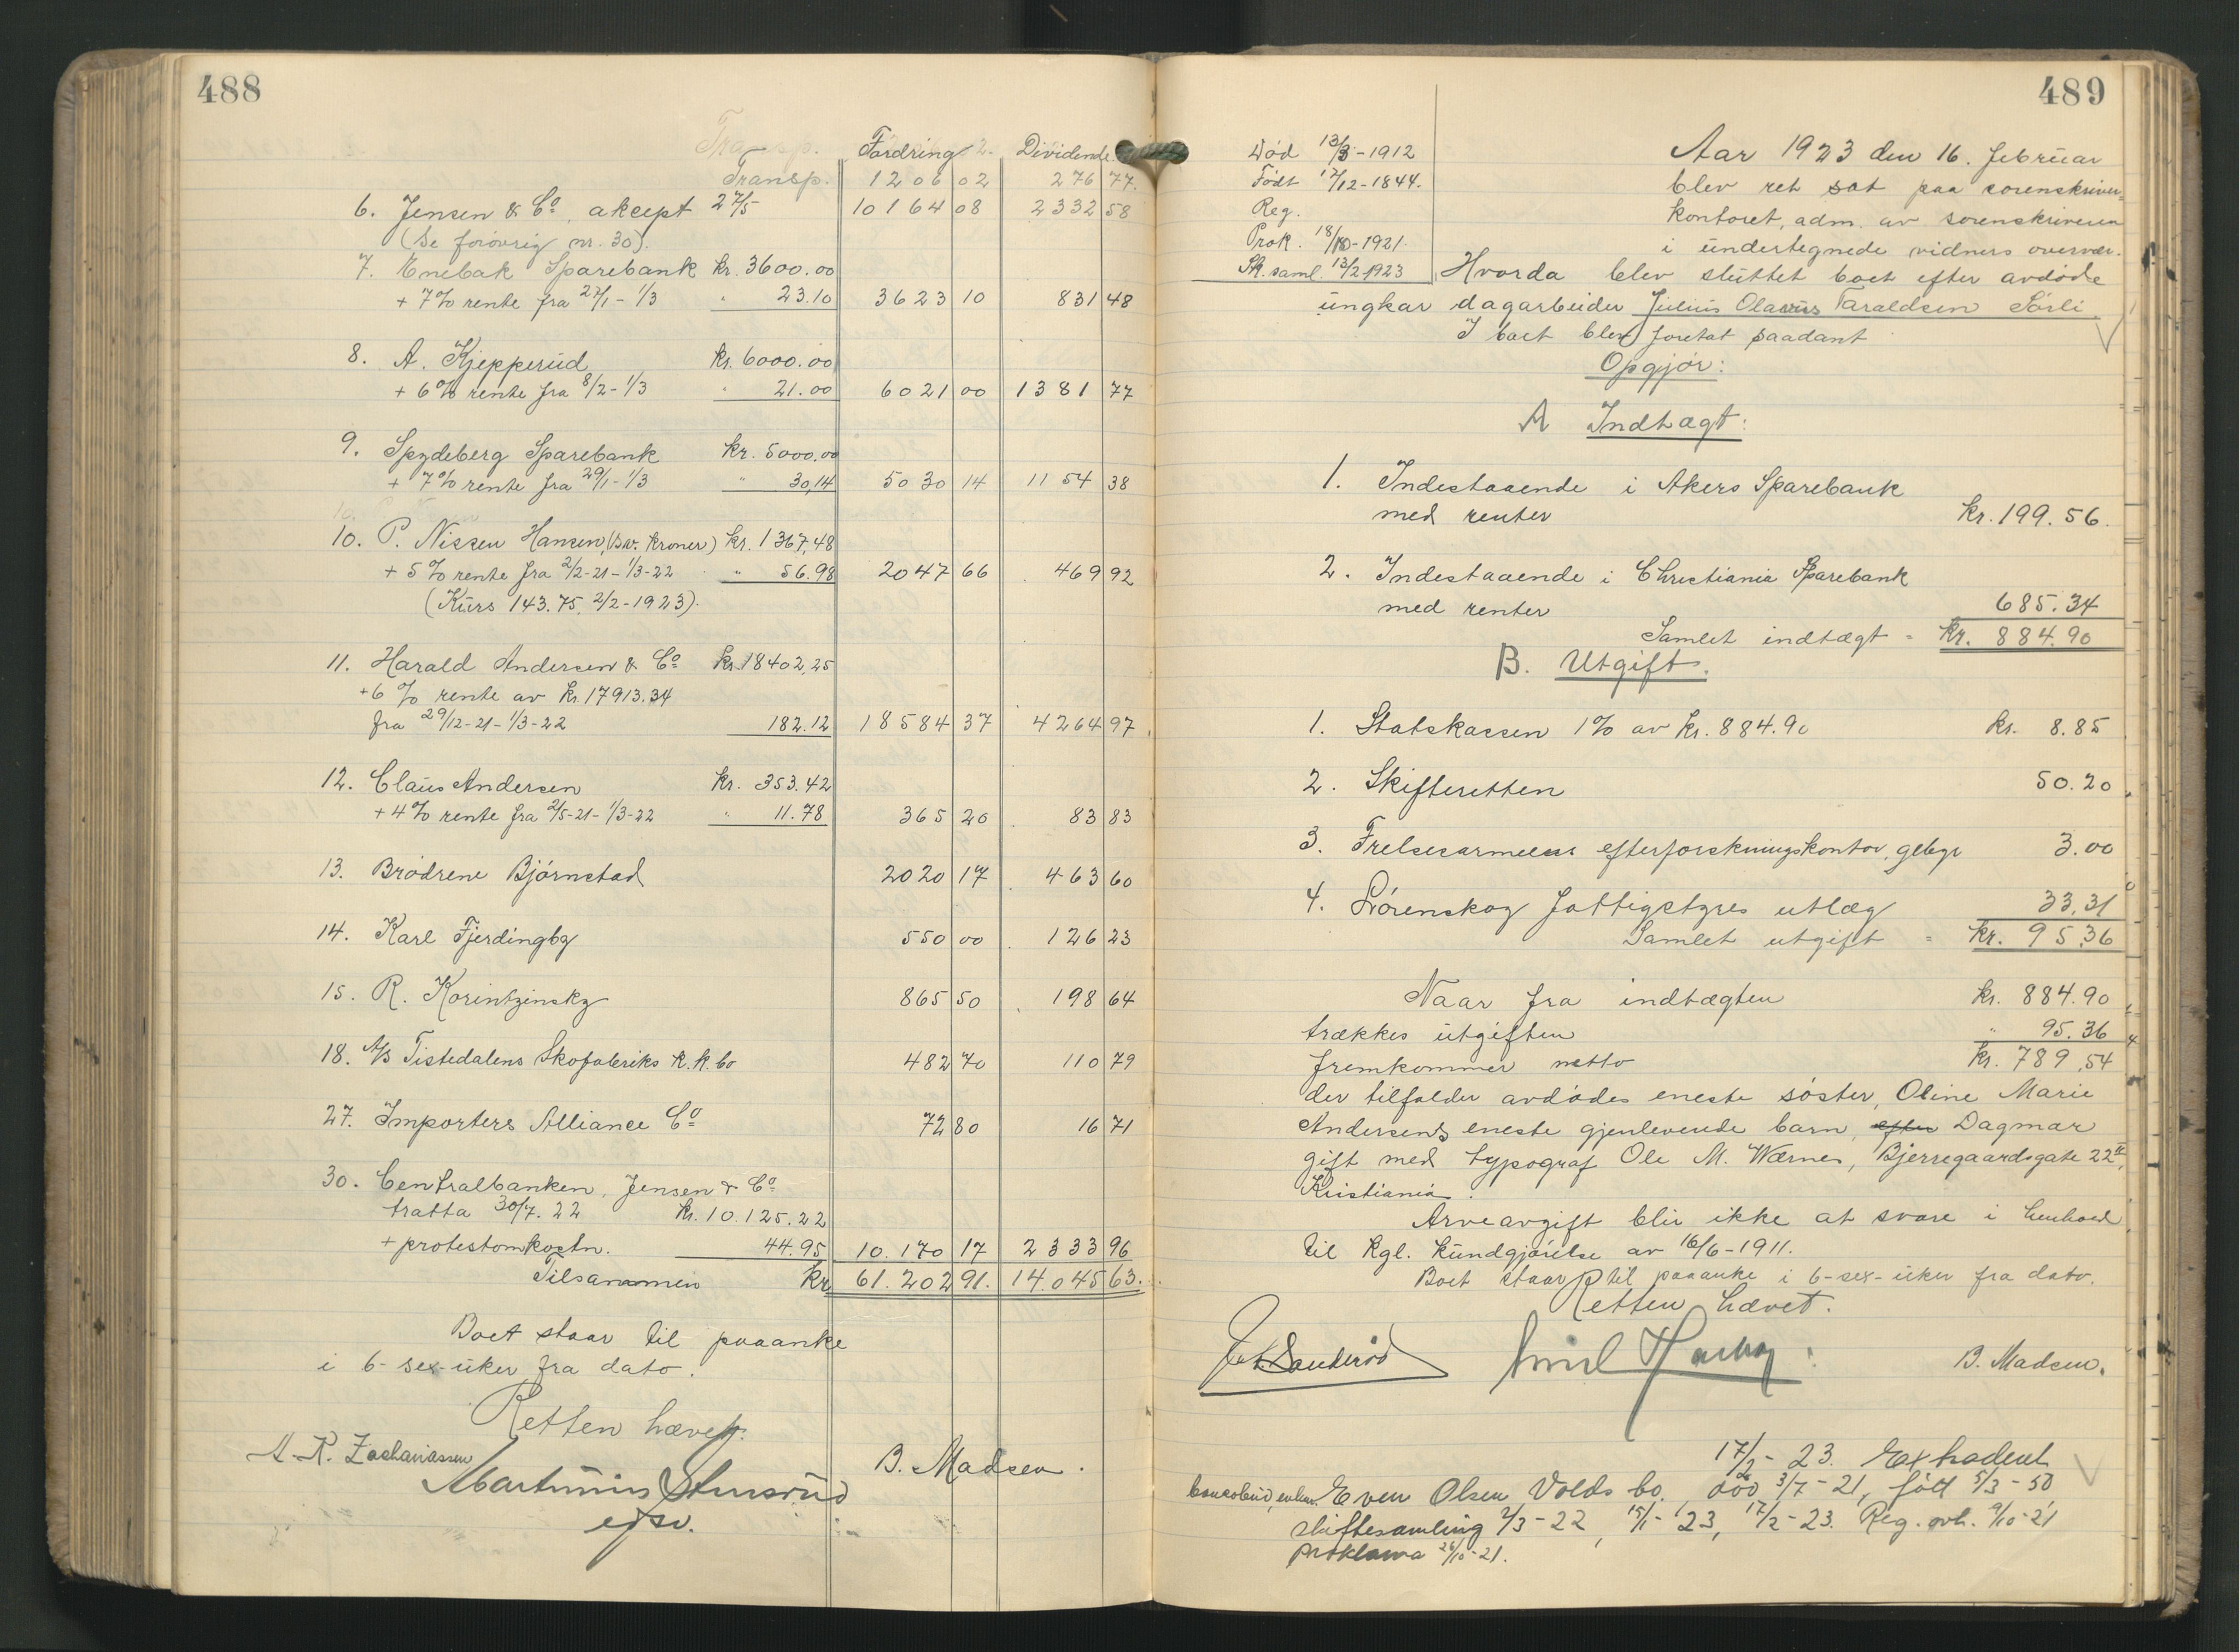 488
Fordring Dividende
Transp. 1206 02 276 77.
6. Jensen & Co. aksept 27/5 10164 08 2332 58
(Se forøvrig nr. 30).
7. Enebak Sparebank kr. 3600.00
+ 7% rente fra 27/1 - 1/3 " 23.10 3623 10 831 48
8. A. Kjepperud kr. 6000.00
+ 6% rente fra 8/2 - 1/3 " 21.00 6021 00 1381 77
9. Spydeberg Sparebank kr. 5000.00
+ 7% rente fra 29/1 - 1/3 " 30,14 5030 14 1154 38
10. P. Nissen Hansen, (sv. kroner) kr. 1367,48
+ 5% rente fra 2/2-21 - 1/3-22 " 56.98 2047 66 469 92
(Kurs 143.75, 2/2-1923).
11. Harald Andersen & Co kr. 18402,25
+ 6% rente av kr. 17913.34
fra 29/12-21 - 1/3-22 182.12 18584 37 4264 97
12. Claus Andersen kr. 353.42
+ 4% rente fra 2/5-21 - 1/3-22 " 11.78 365 20 83 83
13. Brødrene Bjørnstad 2020 17 463 60
14. Karl Fjerdingby 550 00 126 23
15. R. Korintzinsky 865 50 198 64
18. A/S Tistedalens Skofabriks k.k.bo 482 70 110 79
27. Importers Alliance Co 72 80 16 71
30. Centralbanken, Jensen & Co
tratta 30/7. 22 kr. 10.125.22
+ protestomkostn. 44.95 10.170 17 2333 96
Tilsammen kr. 61.202 91. 14.045 63.
Boet staar til paaanke
i 6-sex-uker fra dato.
Retten hævet.
A. R. Zachariassen
B. Madsen.
489
Død 13/3-1912
Født 17/12-1844.
Reg.
Prok. 18/10-1921.
Sk. saml. 13/2-1923
Aar 1923 den 16. februar
blev ret sat paa sorenskriver-
kontoret, adm. av sorenskriveren
i undertegnede vidners overvær.
Hvorda blev sluttet boet efter avdøde
ungkar dagarbeider Julius Olavus Taraldsen Sørli.
I boet blev foretat saadant
Opgjør:
A Indtægt:
1. Indestaaende i Akers Sparebank
med renter kr. 199.56.
2. Indestaaende i Christiania Sparebank
med renter 685.34
Samlet indtægt = kr. 884.90
B. Utgift.
1. Statskassen 1% av kr. 884.90 kr. 8.85
2. Skifteretten 50.20
3. Frelsesarmeens efterforskningskontor, gebyr 3.00
4. Lørenskog fattigstyres utlæg 33,31
Samlet utgift = kr. 95.36
Naar fra indtægten kr. 884.90
trækkes utgiften " 95.36
fremkommer netto kr. 789,54
der tilfalder avdødes eneste søster, Oline Marie
Andersens eneste gjenlevende barn, efter Dagmar
gift med typograf Ole M. Wærnes, Bjerregaardsgate 22 II,
Kristiania.
Arveavgift blir ikke at svare i henhold
til Kgl. kundgjørelse av 16/6-1911.
Boet staar til paaanke i 6-sex-uker fra dato.
Retten hævet.
B. Madsen.
17/2-23. Extradert
Even Olsen Volds bo. død 3/7-21, født 5/3-50
skiftesamling 2/3-22, 15/1-23, 17/2-23. Reg. avh. 9/10-21
proklama 26/10-21.